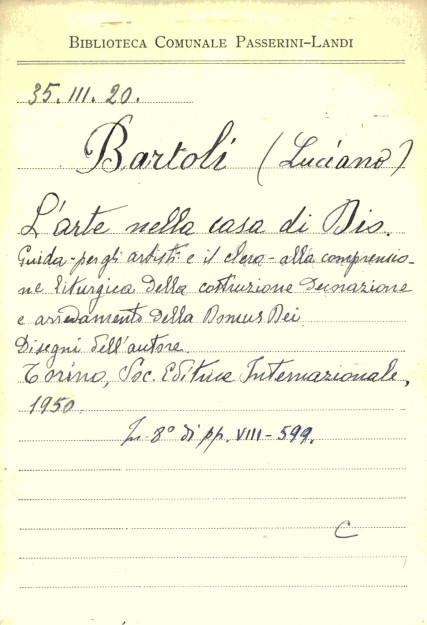 BIBLIOTECA COMUNALE PASSERINI-LANDI
35. III. 20.
Bartoli (Luciano)
L'arte nella casa di Dio.
Guida per gli artisti e il clero - alla comprensio-
ne liturgica della costruzione
e arredamento della Domus Dei
Disegni dell'autore.
Torino, Soc. Editrice Internazionale,
1950.
In 8° di pp. VIII - 599.
C